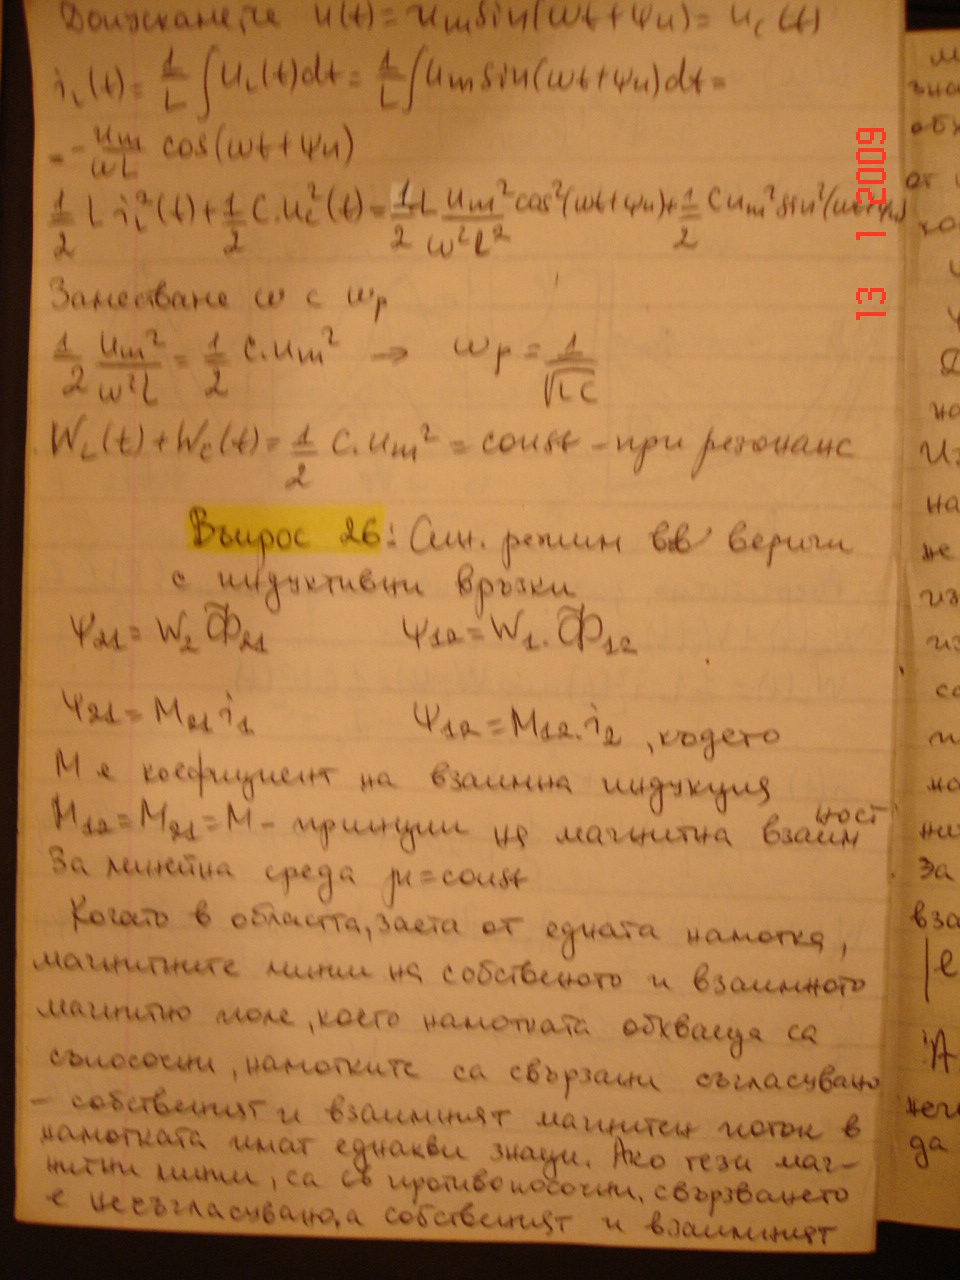 Допускане, че u(t) = Um sin(ωt+ψu) = uc(t)
iL(t) = 1/L ∫UL(t)dt = 1/L ∫Um sin(ωt+ψu)dt =
= - Um/ωL cos(ωt+ψu)
1/2 L iL²(t) + 1/2 C.Uc²(t) = 1/2 L Um²/ω²L² cos²(ωt+ψu) + 1/2 C Um² sin²(ωt+ψu)
Заместваме ω с ωp
1/2 Um²/ω²L = 1/2 C.Um² → ωp = 1/√LC
WL(t) + Wc(t) = 1/2 C.Um² = const - при резонанс
Въпрос 26: Син. режим във вериги
с индуктивни връзки
Ψ21 = W2 Ф21 Ψ12 = W1.Ф12
Ψ21 = M21 i1 Ψ12 = M12.i2, където
M е коефициент на взаимна индукция
M12 = M21 = M - принцип на магнитна взаимност
За линейна среда μ = const
Когато в областта, заета от едната намотка,
магнитните линии на собственото и взаимното
магнитно поле, което намотката обхваща са
еднопосочни, намотките са свързани съгласувано
- собственият и взаимният магнитен поток в
намотката имат еднакви знаци. Ако тези маг-
нитни линии, са с противопосочни, свързването
е несъгласувано, а собственият и взаимният
13 1 2009